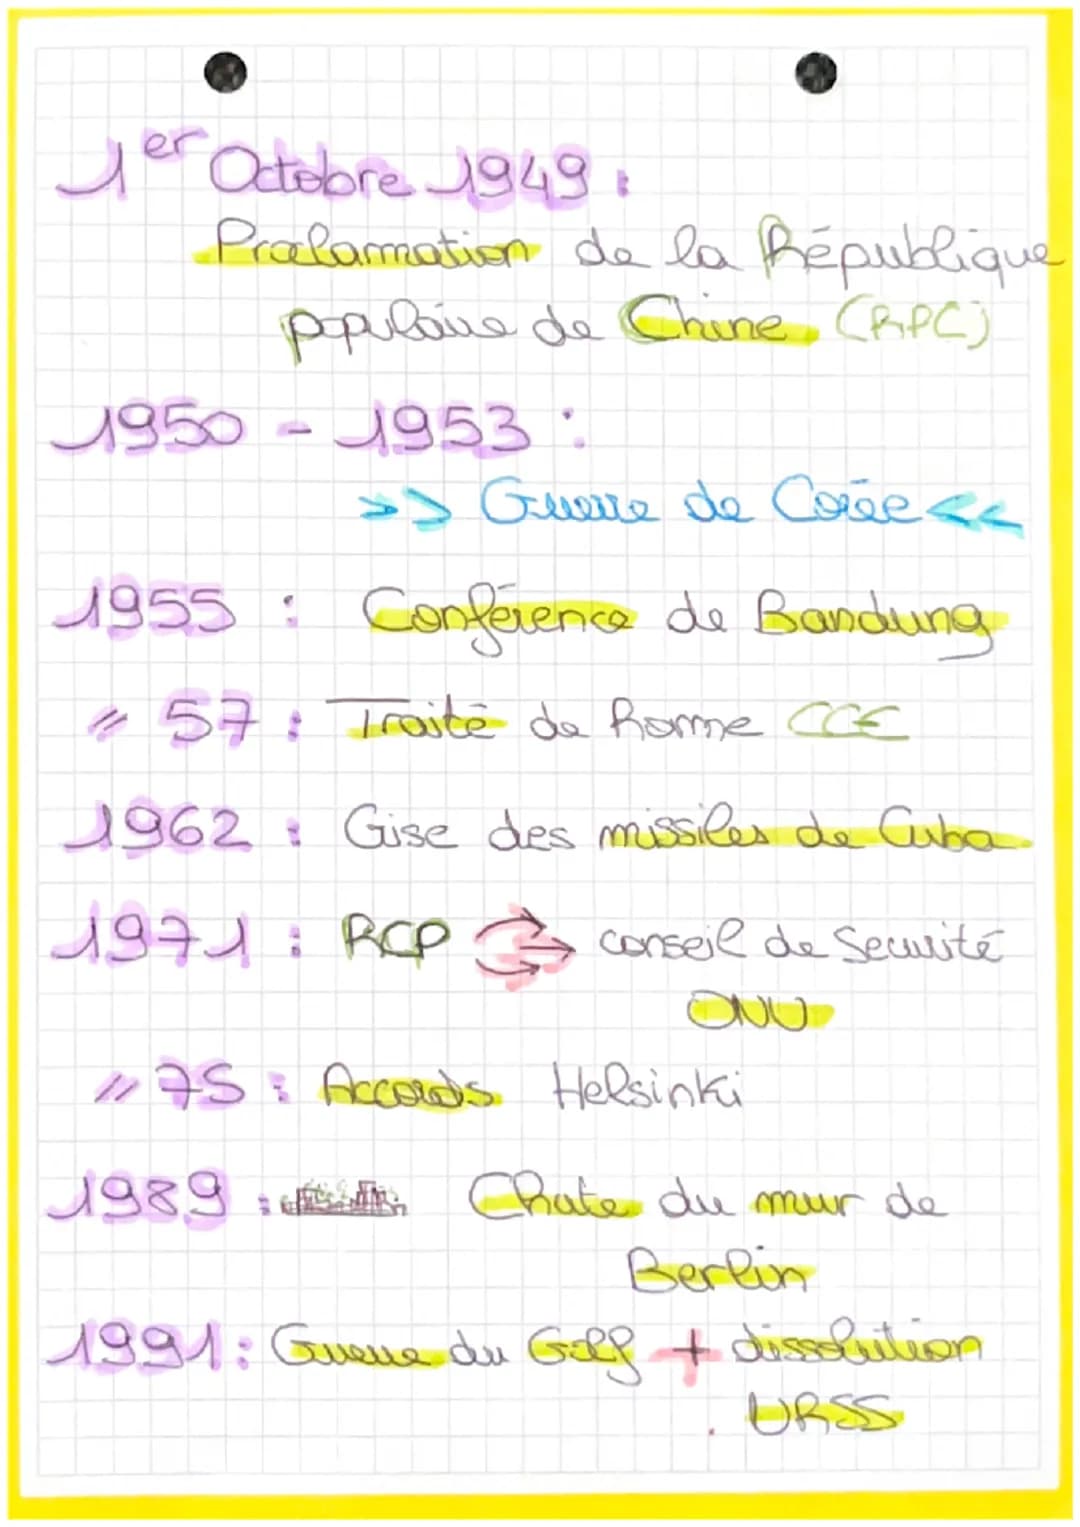 1er Octobre 1949 :
Proclamation de la République
populaire de Chine (RPC)
1950 - 1953 :
>> Guerre de Corée <<
1955 : Conférence de Bandung
" 57 : Traité de Rome CCE
1962 : Crise des missiles de Cuba
1971 : RCP conseil de Sécurité
ONU
" 75 : Accords Helsinki
1989 : Chute du mur de
Berlin
1991 : Guerre du Golf + dissolution
URSS